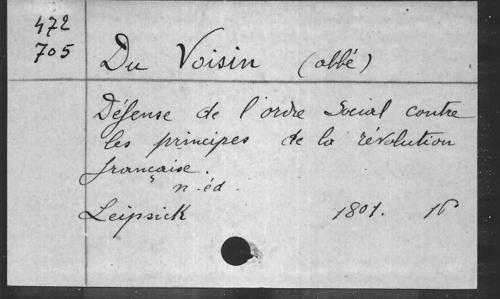 472
705
Du Voisin (abbé)
Défense de l'ordre Social contre
les principes de la révolution
française.
n. éd.
Leipsick 1801. 16°